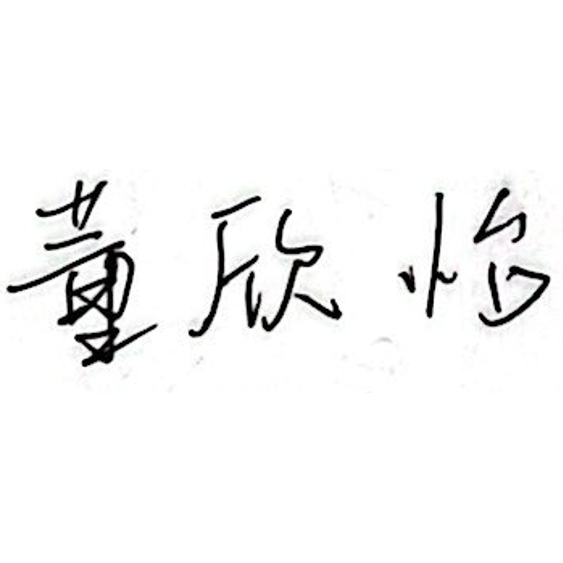 董欣怡